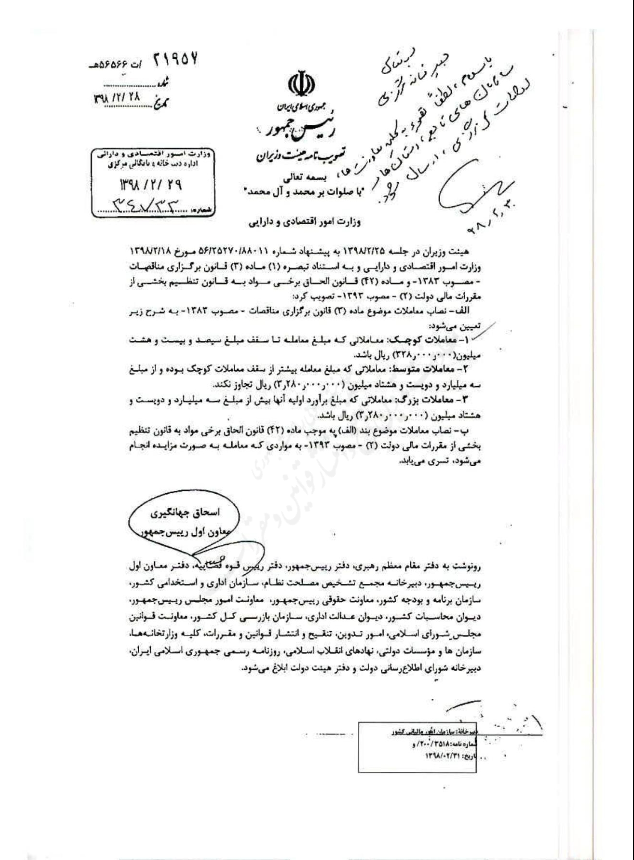 ۲۱۹۵۷ /ت ۵۶۵۶۶هـ
شماره
۱۳۹۸/۲/۲۸
تاریخ
جمهوری اسلامی ایران
رئیس جمهور
تصویب نامه هیئت وزیران
بسمه تعالی
"با صلوات بر محمد و آل محمد"
وزارت امور اقتصادی و دارائی
اداره دبیرخانه و بایگانی مرکزی
۱۳۹۸/۲/۲۹
شماره: ۳۴۷۳۳
۹۸،۲،۳۰
وزارت امور اقتصادی و دارایی
هیئت وزیران در جلسه ۱۳۹۸/۲/۲۵ به پیشنهاد شماره ۵۶/۲۵۲۷۰/۸۸۰۱۱ مورخ ۱۳۹۸/۲/۱۸
وزارت امور اقتصادی و دارایی و به استناد تبصره (۱) ماده (۳) قانون برگزاری مناقصات
- مصوب ۱۳۸۳- و ماده (۴۲) قانون الحاق برخی مواد به قانون تنظیم بخشی از
مقررات مالی دولت (۲) - مصوب ۱۳۹۳- تصویب کرد:
الف- نصاب معاملات موضوع ماده (۳) قانون برگزاری مناقصات - مصوب ۱۳۸۳- به شرح زیر
تعیین می‌شود:
۱- معاملات کوچک: معاملاتی که مبلغ معامله تا سقف مبلغ سیصد و بیست و هشت
میلیون(۳۲۸ر۰۰۰ر۰۰۰) ریال باشد.
۲- معاملات متوسط: معاملاتی که مبلغ معامله بیشتر از سقف معاملات کوچک بوده و از مبلغ
سه میلیارد و دویست و هشتاد میلیون (۳ر۲۸۰ر۰۰۰ر۰۰۰) ریال تجاوز نکند.
۳- معاملات بزرگ: معاملاتی که مبلغ برآورد اولیه آنها بیش از مبلغ سه میلیارد و دویست و
هشتاد میلیون (۳ر۲۸۰ر۰۰۰ر۰۰۰) ریال باشد.
ب- نصاب معاملات موضوع بند (الف) به موجب ماده (۴۲) قانون الحاق برخی مواد به قانون تنظیم
بخشی از مقررات مالی دولت (۲) - مصوب ۱۳۹۳- به مواردی که معامله به صورت مزایده انجام
می‌شود، تسری می‌یابد.
اسحاق جهانگیری
معاون اول رییس‌جمهور
رونوشت به دفتر مقام معظم رهبری، دفتر رییس‌جمهور، دفتر رییس قوه قضاییه، دفتر معاون اول
رییس‌جمهور، دبیرخانه مجمع تشخیص مصلحت نظام، سازمان اداری و استخدامی کشور،
سازمان برنامه و بودجه کشور، معاونت حقوقی رییس‌جمهور، معاونت امور مجلس رییس‌جمهور،
دیوان محاسبات کشور، دیوان عدالت اداری، سازمان بازرسی کل کشور، معاونت قوانین
مجلس شورای اسلامی، امور تدوین، تنقیح و انتشار قوانین و مقررات، کلیه وزارتخانه‌ها،
سازمان ها و مؤسسات دولتی، نهادهای انقلاب اسلامی، روزنامه رسمی جمهوری اسلامی ایران،
دبیرخانه شورای اطلاع‌رسانی دولت و دفتر هیئت دولت ابلاغ می‌شود.
دبیرخانه: سازمان امور مالیاتی کشور
شماره نامه: ۲۰۰/۳۵۱۸/ و
تاریخ: ۱۳۹۸/۰۲/۳۱